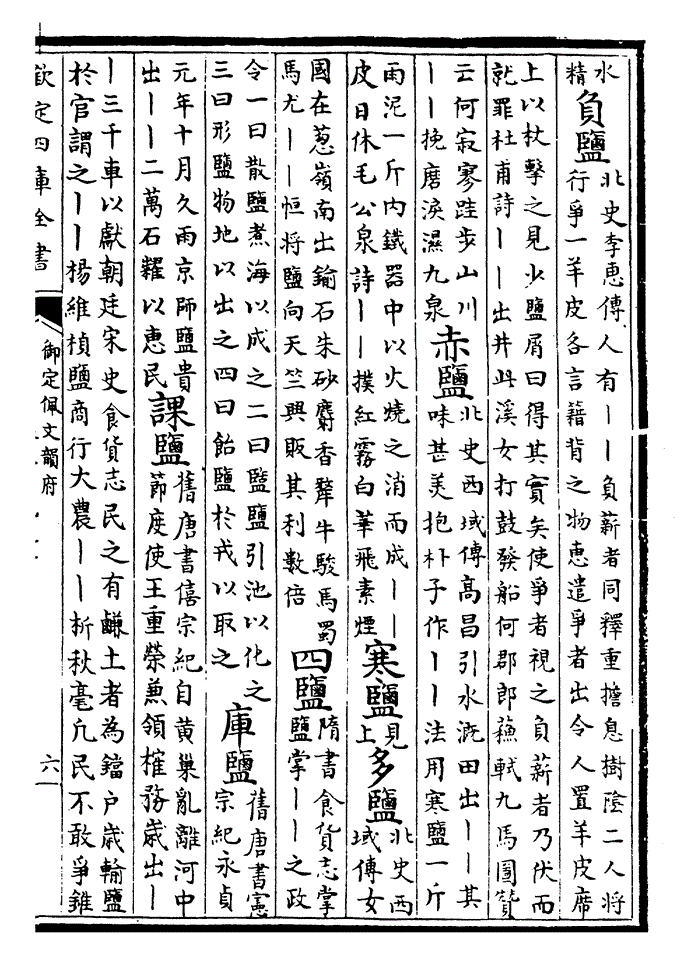 水
精
負鹽
北史李恵傳人有丨丨負薪者同釋重擔息樹陰二人將
行爭一羊皮各言藉背之物恵遣爭者出令人置羊皮席
上以杖擊之見少鹽屑曰得其實矣使爭者視之負薪者乃伏而
就罪杜甫詩丨丨出井此溪女打鼓發船何郡郎蘓軾九馬圖贊
云何寂寥跬步山川
丨丨挽磨淚濕九泉
赤鹽
北史西域傳髙昌引水溉田出丨丨其
味甚美抱朴子作丨丨法用寒鹽一斤
雨泥一斤内鐵器中以火燒之消而成丨丨
皮日休毛公泉詩丨丨撲紅霧白華飛素煙
寒鹽
見
上
多鹽
北史西
域傳女
國在葱嶺南出鍮石朱砂麝香犛牛駿馬蜀
馬尤丨丨恒將鹽向天竺興販其利數倍
四鹽
隋書食貨志掌
鹽掌丨丨之政
令一曰散鹽煮海以成之二曰盬鹽引池以化之
三曰形鹽物地以出之四曰飴鹽於戎以取之
庫鹽
舊唐書憲
宗紀永貞
元年十月久雨京師鹽貴
出丨丨二萬石糶以恵民
課鹽
舊唐書僖宗紀自黄巢亂離河中
節度使王重榮兼領榷務歲出丨
丨三千車以獻朝廷宋史食貨志民之有鹻土者為鐺户歲輸鹽
於官謂之丨丨楊維楨鹽商行大農丨丨析秋毫凢民不敢爭錐
欽定四庫全書
御定佩文韻府
六